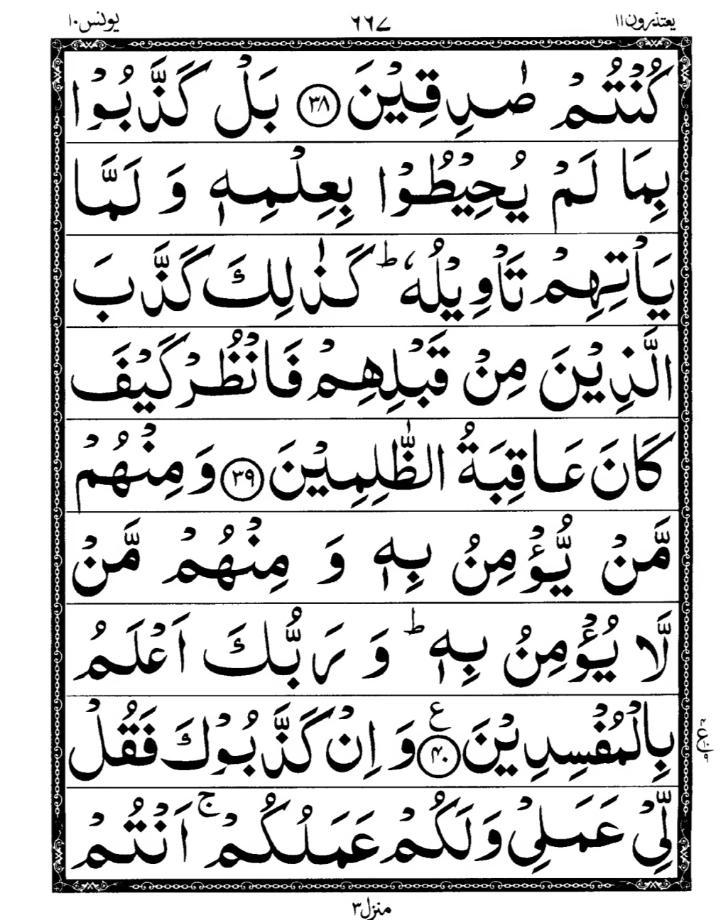 یعتذرون ۱۱ ۶۶۷ یونس ۱۰
كُنْتُمْ صٰدِقِيْنَ ﴿۳۸﴾ بَلْ كَذَّبُوْا
بِمَا لَمْ يُحِيْطُوْا بِعِلْمِهٖ وَ لَمَّا
يَاْتِهِمْ تَاْوِيْلُهٗ ؕ كَذٰلِكَ كَذَّبَ
الَّذِيْنَ مِنْ قَبْلِهِمْ فَانْظُرْ كَيْفَ
كَانَ عَاقِبَةُ الظّٰلِمِيْنَ ﴿۳۹﴾ وَ مِنْهُمْ
مَّنْ يُّؤْمِنُ بِهٖ وَ مِنْهُمْ مَّنْ
لَّا يُؤْمِنُ بِهٖ ؕ وَ رَبُّكَ اَعْلَمُ
بِالْمُفْسِدِيْنَ ﴿۴۰﴾ ع وَ اِنْ كَذَّبُوْكَ فَقُلْ
لِّيْ عَمَلِيْ وَلَكُمْ عَمَلُكُمْ ۚ اَنْتُمْ
منزل ۳